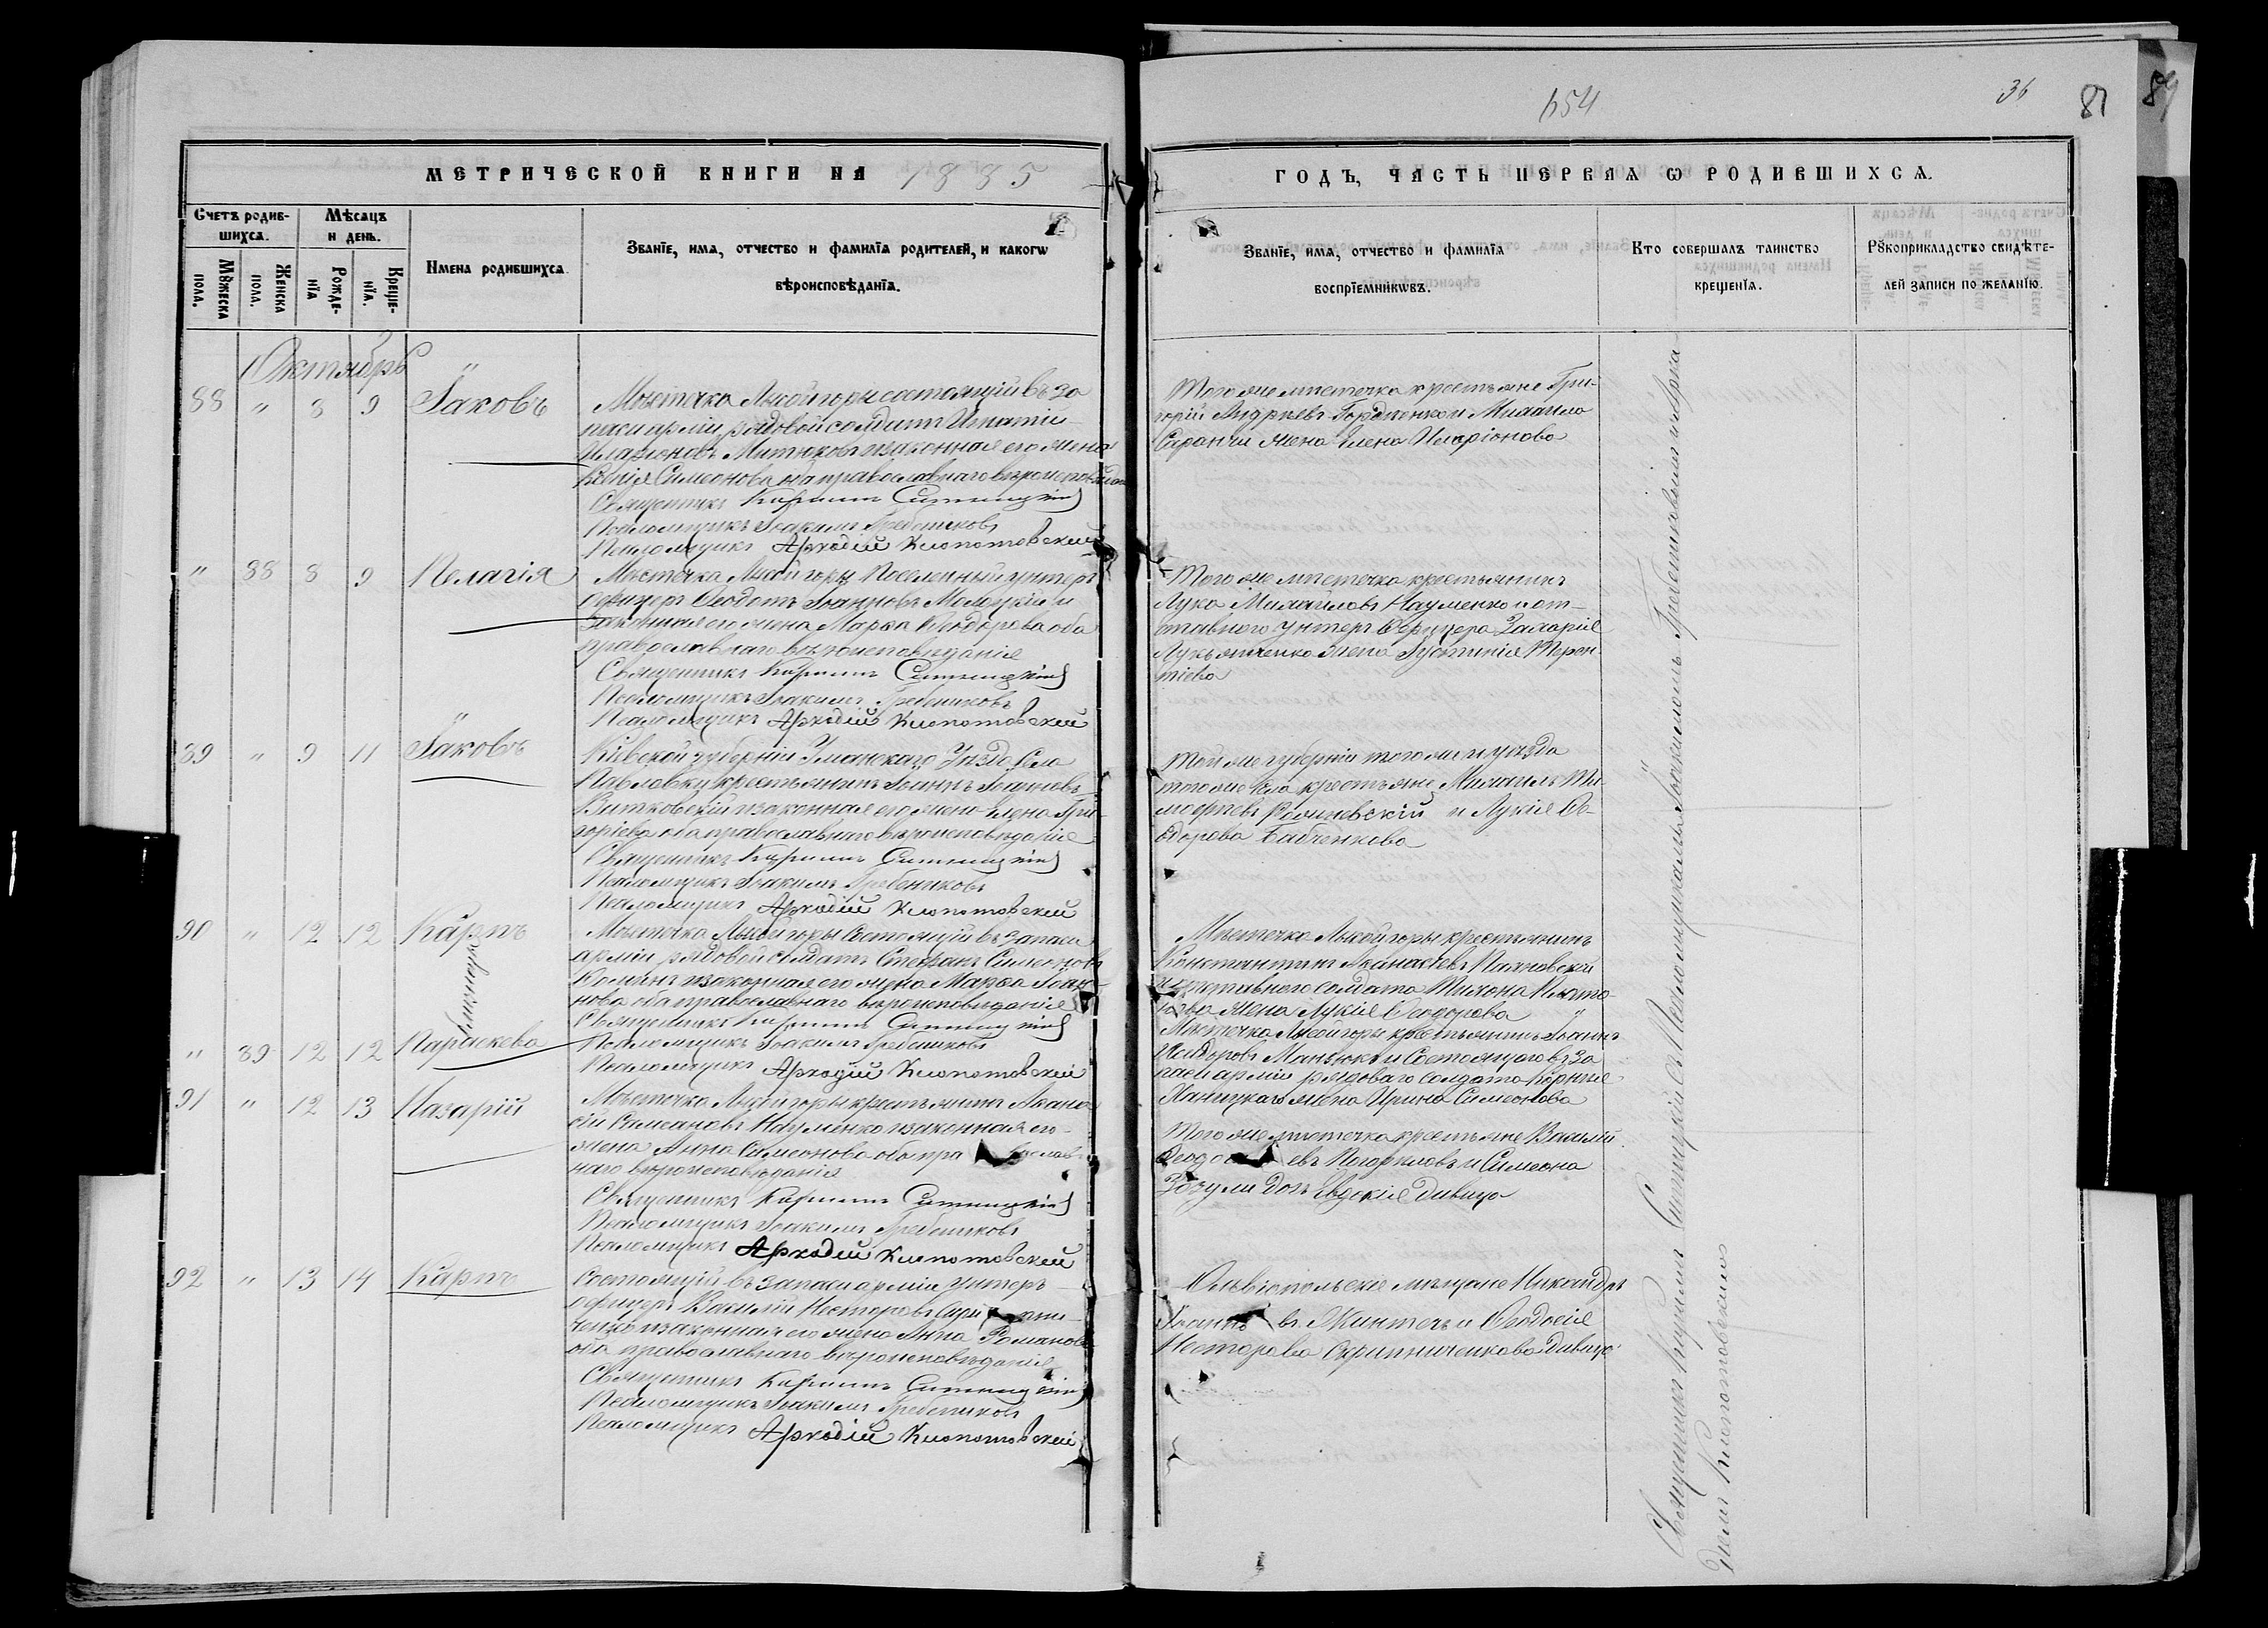 654
36
81
МЕТРИЧЕСКОЙ КНИГИ НА 1885
ГОДЪ, ЧАСТЬ ПЕРВАЯ Ѡ РОДИВШИХСЯ.
Счетъ родив-
шихся.
Мѣсяцъ
и день.
Мꙋжеска
пола.
Женска
пола.
Рожде-
нїя
Креще-
нїя.
Имена родившихся.
Званїе, имя, отчество и фамилїя родителей, и какогѡ
вѣроисповѣданїя.
Званїе, имя, отчество и фамилїя
воспрїемникѡвъ.
Кто совершалъ таинство
крещенїя.
Рꙋкоприкладство свидѣте-
лей записи по желанїю.
Октябрь
88 " 8 9 Іаковъ
Мѣстечка Лысой горы состоящій въ за
паси арміи рядовой солдатъ Игнатій
Иларіоновъ Митинковъ и законная его жена
Ксенія Симеонова оба православнаго вѣроисповѣдан
Священникъ Кириллъ Ситницкій
Псаломщикъ Іоакимъ Гребениковъ
Псаломщикъ Аркадій Клопотовскій
Того же мѣстечка крестьяне Гри-
горій Андреевъ Гордиенко и Михаила
Саранчи жена Елена Иларіонова
" 88 8 9 Пелагія
Мѣстечка Лысой горы Поселенный унтеръ
офицеръ Ѳеодотъ Іоанновъ Молоцкій и
законная его жена Марѳа Ѳеодорова оба
православнаго вѣроисповѣданія
Священникъ Кириллъ Ситницкій
Псаломщикъ Іоакимъ Гребениковъ
Псаломщикъ Аркадій Клопотовскій
Того же мѣстечка крестьянинъ
Лука Михайловъ Науменко и от-
ставного унтеръ Офицера Захарія
Лукьянченко жена Іустинія Терен
тіева
89 " 9 11 Іаковъ
Кіевской губерніи Уманскаго Уѣзда Села
Павловки крестьянинъ Іоаннъ Іоанновъ
Витковскій и законная его жена Елена Гри-
горіева оба православнаго вѣроисповѣданія
Священникъ Кириллъ Ситницкій
Псаломщикъ Іоакимъ Гребениковъ
Псаломщикъ Аркадій Клопотовскій
Той же губерніи того же и уѣзда
того же села крестьяне Михаилъ Ти-
моѳеевъ и Лукія Ѳе-
одорова Бабченкова
90 " 12 12 Карпъ
близнецы
" 89 12 12 Параскева
Мѣстечка Лысой горы Состоящій въ запаси
арміи рядовой солдатъ Стефанъ Симеоновъ
и законная его жена Марѳа Іоан-
нова оба православнаго вѣроисповѣданія
Священникъ Кириллъ Ситницкій
Псаломщикъ Іоакимъ Гребениковъ
Псаломщикъ Аркадій Клопотовскій
Мѣстечка Лысой горы крестьянинъ
Константинъ Аѳанасіевъ
и отставного солдата Тихона
жена Лукія Ѳеодорова
Мѣстечка Лысой горы крестьянинъ Іоаннъ
Исидоровъ Манзюкъ и Состоящаго въ за
паси арміи рядоваго солдата Корнилія
жена Ирина Симеонова
91 " 12 13 Назарій
Мѣстечка Лысой горы крестьянинъ Аѳана
сій Симеоновъ Науменко и законная его
жена Анна Симеонова оба пра вослав-
наго вѣроисповѣданія
Священникъ Кириллъ Ситницкій
Псаломщикъ Іоакимъ Гребениковъ
Псаломщикъ Аркадій Клопотовскій
Того же мѣстечка крестьяне Василій
евъ Погориловъ и Симеона
Зозули дочь Евдокія дѣвица
92 " 13 14 Карпъ
Состоящій въ запаси арміи Унтеръ
офицеръ Василій Несторовъ
ченко и законная его жена Анна Романова
оба православнаго вѣроисповѣданія
Священникъ Кириллъ Ситницкій
Псаломщикъ Іоакимъ Гребениковъ
Псаломщикъ Аркадій Клопотовскій
Ольвіопольскіе мѣщане Никандръ
Іоанно въ и Ѳеодосія
Несторова Скрипниченкова дѣвица
Священникъ Кириллъ Ситницкій съ Псаломщикомъ Іоакимомъ Гребениковымъ и Арка
діемъ Клопотовскимъ